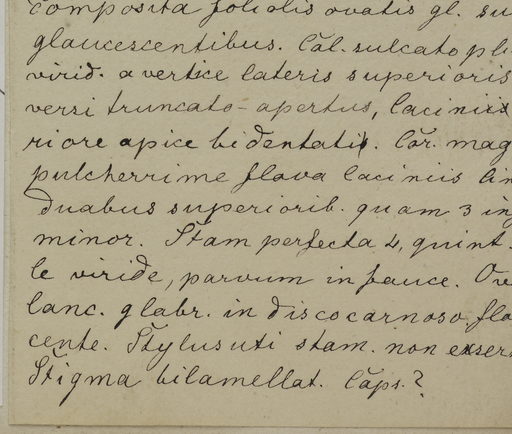 composita foliolis ovatis gl. su
glaucescentibus. Căl. sulcato pli
virid. a vertice lateris superioris
versi truncato-apertus, laciniis
riore apice bidentatis. Cŏr. mag
pulcherrime flava laciniis lin
duabus superiorib. quam 3 inf
minor. Stam perfecta 4, quint.
le viride, parvum in fauce. Ov
lanc. glabr. in disco carnoso fla
cente. Stylus uti stam. non exser
Stigma bilamellat. Căps.?